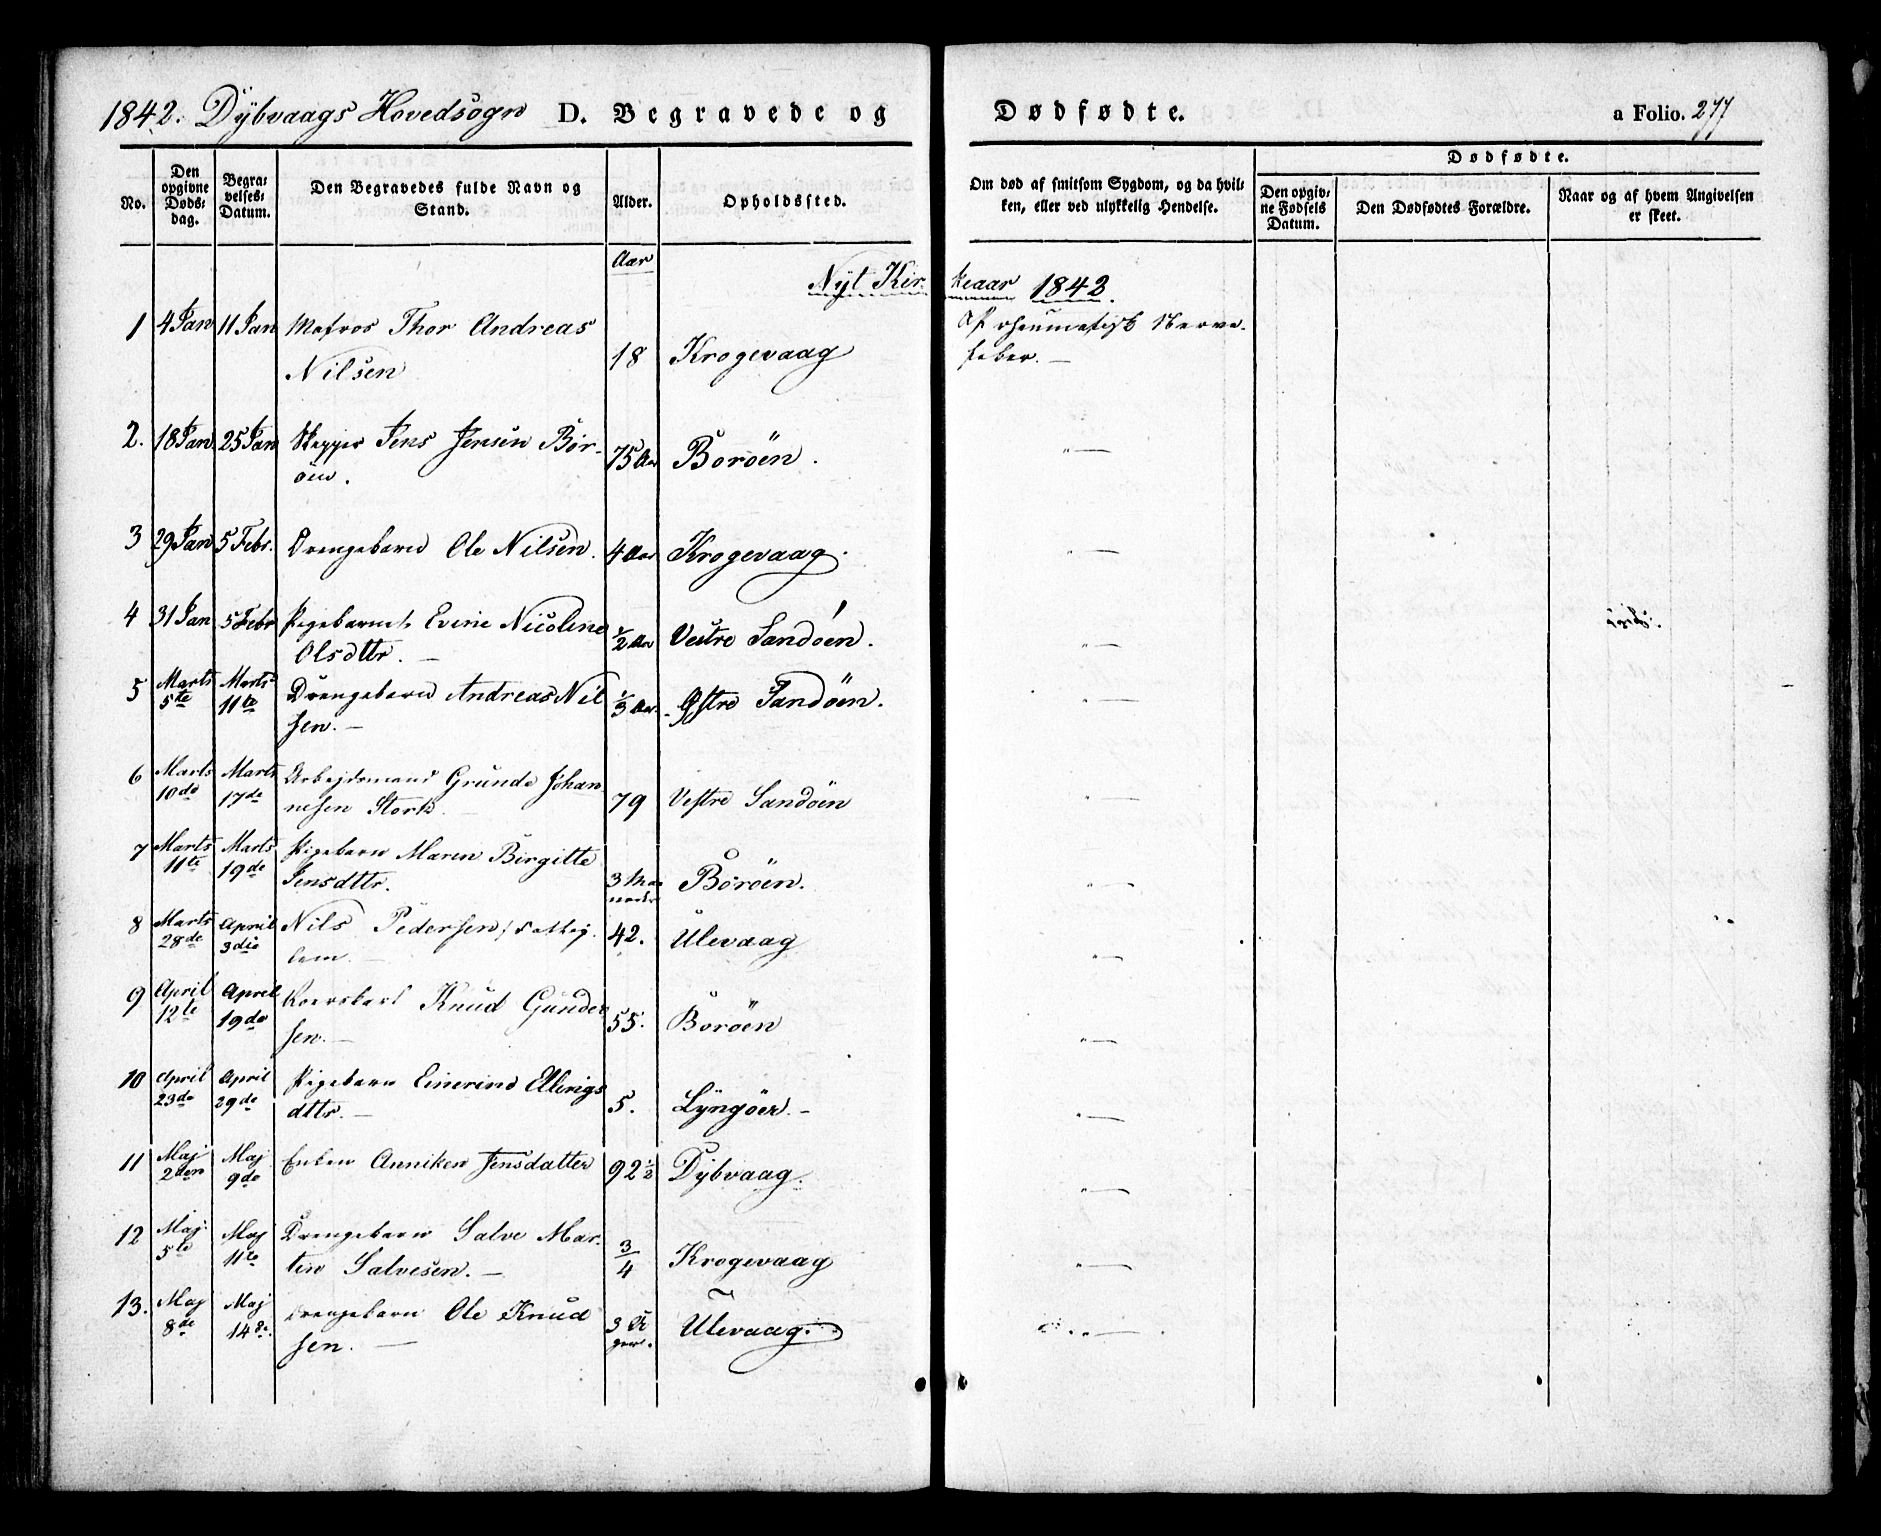 1842. Dybvaags Hovedsogn D. Begravede og Dødfødte. a Folio. 277
No.
Den opgivne Døds-dag.
Begra-velses-Datum.
Den Begravedes fulde Navn og Stand.
Alder.
Opholdssted.
Om død af smitsom Sygdom, og da hvil-ken, eller ved ulykkelig Hendelse.
Dødfødte.
Den opgiv-ne Fødsels Datum.
Den Dødfødtes Forældre.
Naar og af hvem Angivelsen er skeet.
Aar
Nyt Kirkeaar 1842.
1 4 Jan 11 Jan Matros Thor Andreas Af rheumatisk Nerve-
Nilsen 18 Krogevaag feber. —
2. 18 Jan 25 Jan Skipper Jens Jensen Bor-
öen. 75 Aar Boröen. "—
3 29 Jan 5 Febr. Drengebarn Ole Nilsen. 4 Aar Krogevaag. "—
4 31 Jan 5 Febr Pigebarnet Evine Nicoline
Olsdttr. — 1/2 Aar Vestre Sandöen. "—
5 Marts 5te Marts 11te Drengebarn Andreas Nil
sen. — 1/3 Aar. Østre Sandöen. "—
6 Marts 10de Marts 17de Arbejdsmand Grunde Johan
nesen Stork. 79 Vestre Sandöen "—
7 Marts 11te Marts 19de Pigebarn Maren Birgitte
Jensdttr. 3 Maaneder Boröen. "—
8 Marts 28de April 3die Nils Pedersen, Fattig
lem. — 42. Ulevaag "—
9 April 12te April 19de Knud Gunder
sen. — 55. Boröen "—
10 April 23de April 29de Pigebarn Einerine Ellevigs
dttr. — 5. Lyngöer. — "—
11 Maj 2den Maj 9de Enken Anniken Jensdatter 92 1/2 Dybvaag. "—
12 Maj 5te Maj 11te Drengebarn Salve Mar-
tin Salvesen. — 3/4 Krogevaag "—
13. Maj 8de Maj 14de Drengebarn Ole Knud
sen. — 3 Uger. Ulevaag. "—